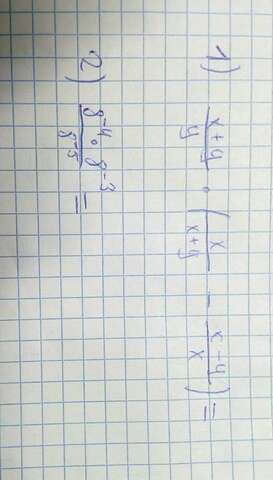 1) \frac{x+y}{y} \cdot \left( \frac{x}{x+y} - \frac{x-y}{x} \right) =
2) \frac{8^{-4} \cdot 8^{-3}}{8^{-5}} =